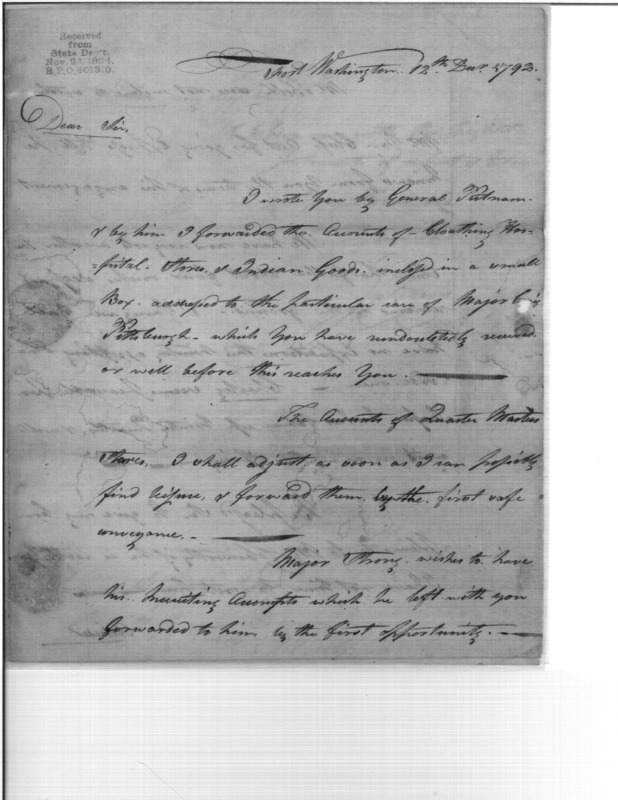 Received
from
State Dep't.
Nov. 24, 1924.
Fort Washington 12th Decr. 1792.
Dear Sir,
I wrote You by General Putnam
& by him I forwarded the Accounts of Cloathing Hos-
=pital Stores, & Indian Goods. inclosed in a small
Box addressed to the particular care of Major
Pittsburgh which You have undoubtedly received
or will before this reaches You.
The Accounts of Quarter Masters
Stores, I shall adjust as soon as I can possibly
find leisure, & forward them by the first safe
conveyance.
Major Strong wishes to have
his Recruiting Accompts which he left with you
forwarded to him by the first opportunity.